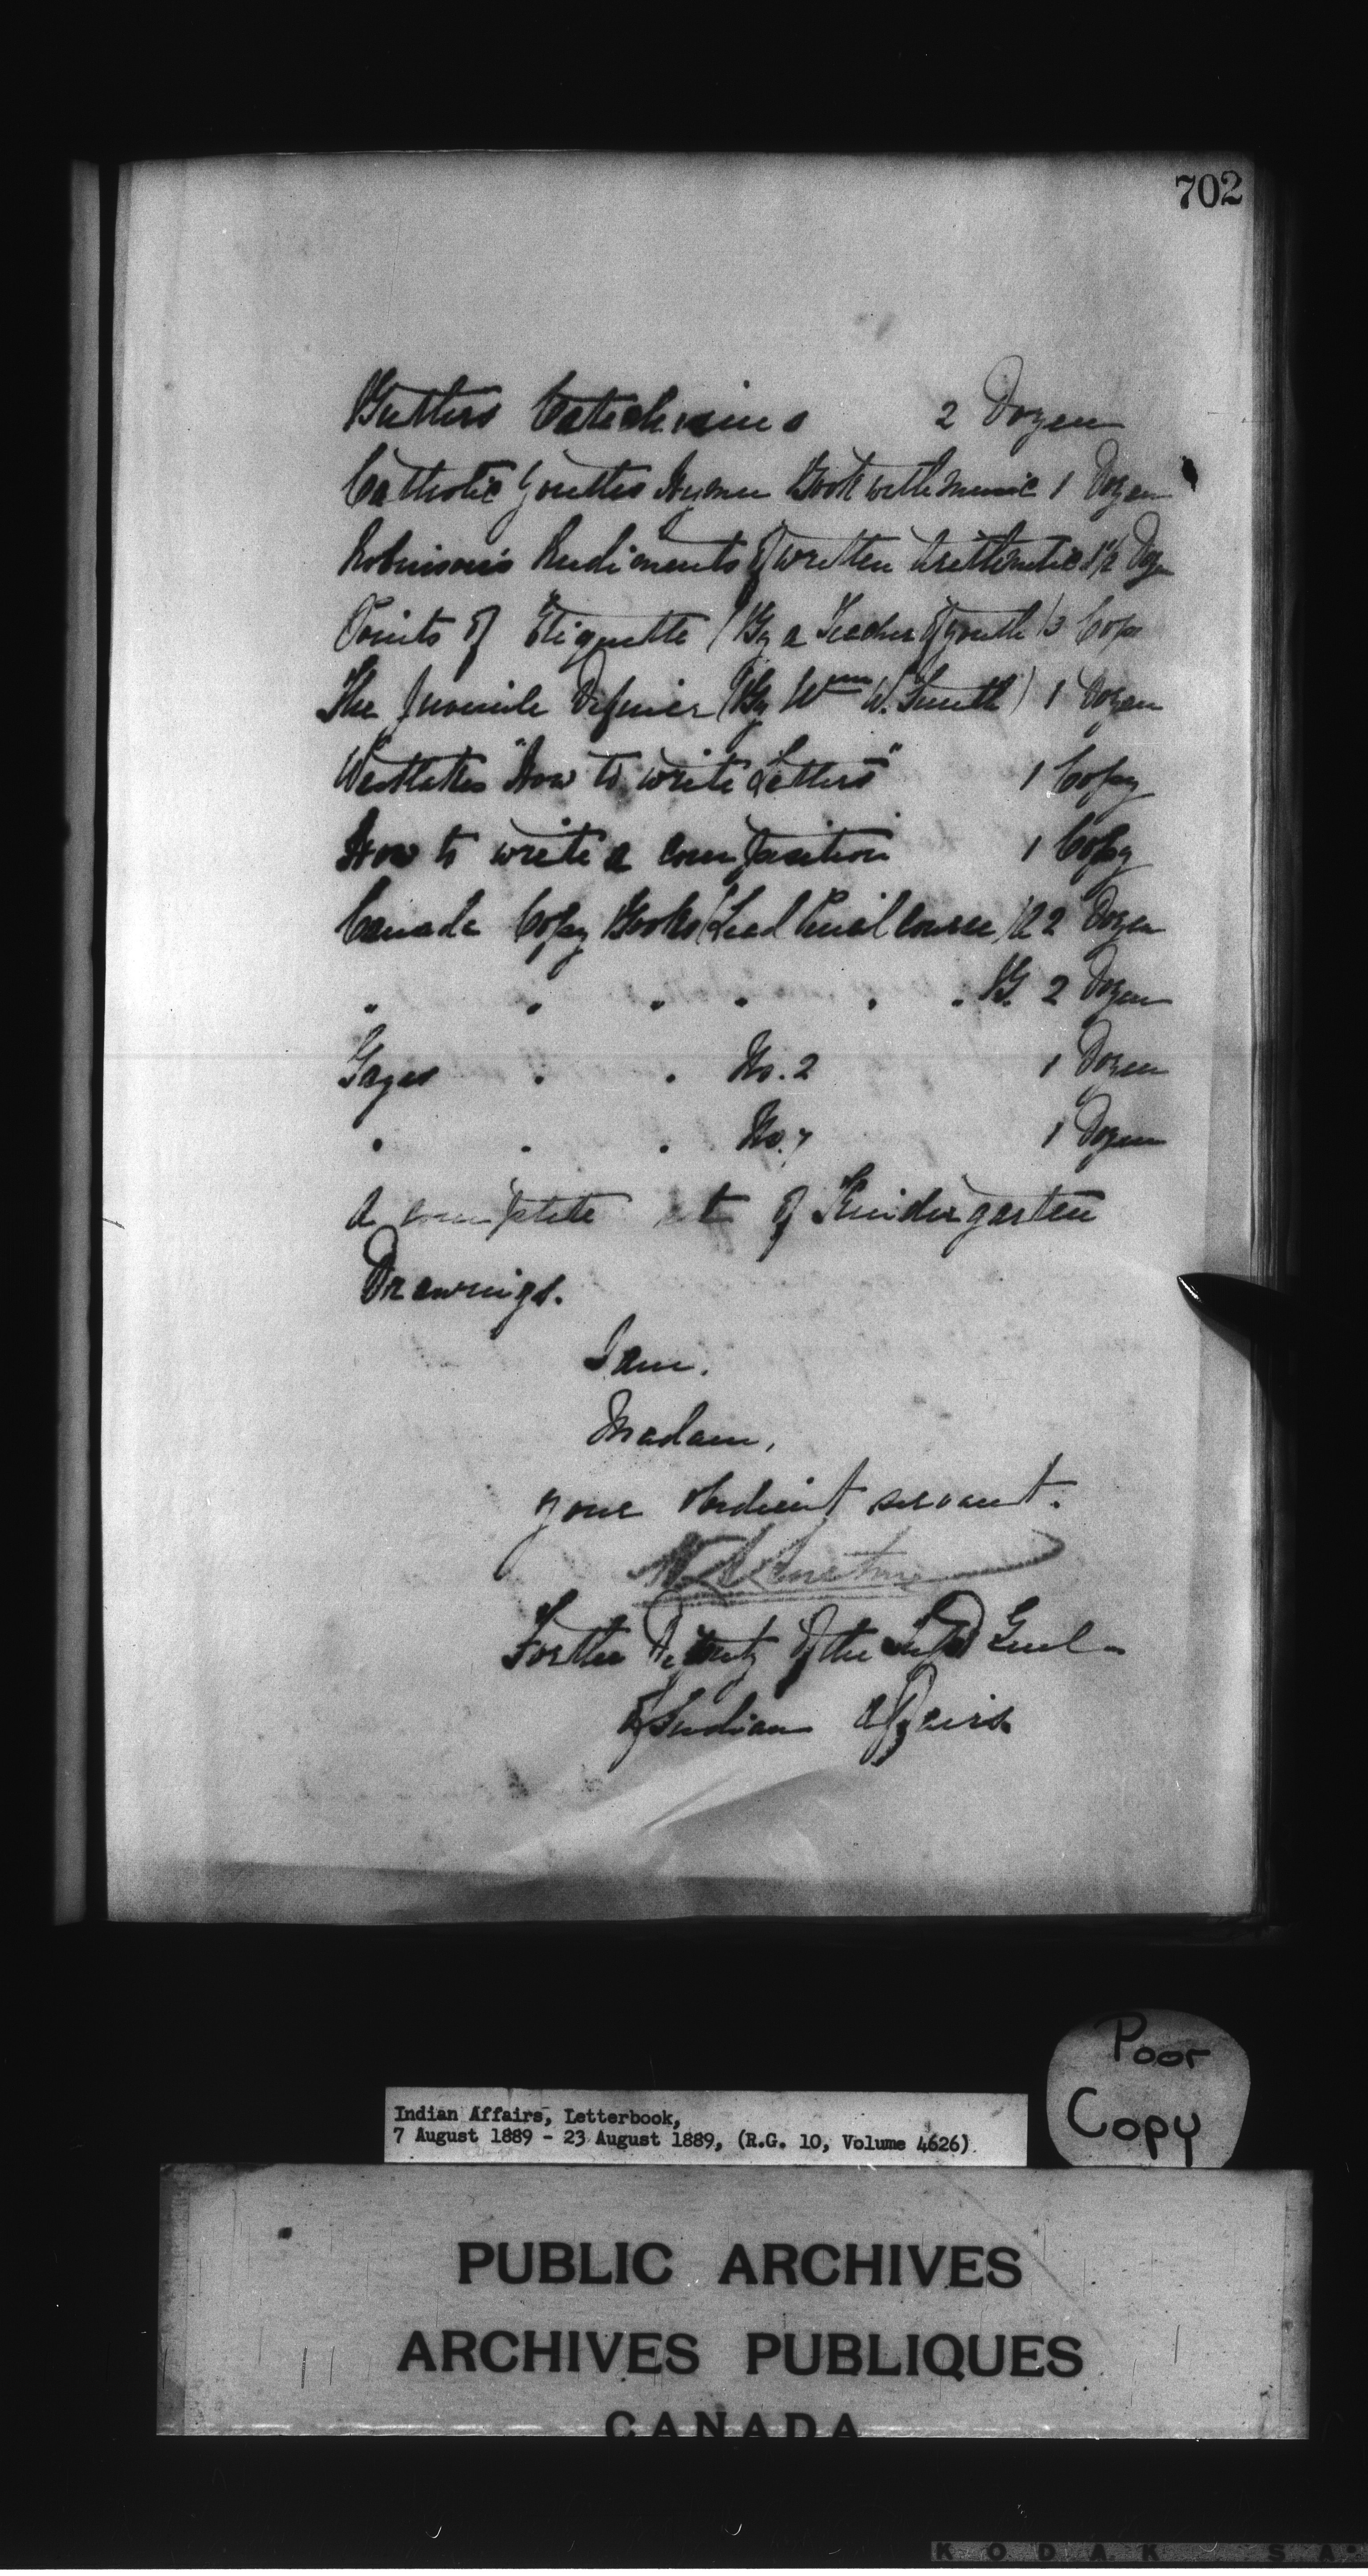 702
Butlers Catechisms 2 Dozen
Catholic Youths Hymn Book with music 1 Dozen
Robinson's Rudiments of written Arithmetic 1½ Doz
Points of Etiquette (By a Teacher of youth) 3 Cop
The Juvenile Definer (By Wm W. Smith) 1 Dozen
Westlakes "How to write Letters" 1 Copy
How to write a composition 1 Copy
Canada Copy Books (Lead Pencil course) A 2 Dozen
" " " " " " B. 2 Dozen
Gages " " No. 2 1 Dozen
" " " No. 7 1 Dozen
A complete set of Kindergarten
Drawings.
I am,
Madam,
your obedient servant.
For the Deputy of the Supt Genl
of Indian Affairs
Poor
Copy
Indian Affairs, Letterbook,
7 August 1889 - 23 August 1889, (R.G. 10, Volume 4626)
PUBLIC ARCHIVES
ARCHIVES PUBLIQUES
CANADA
KODAK SA